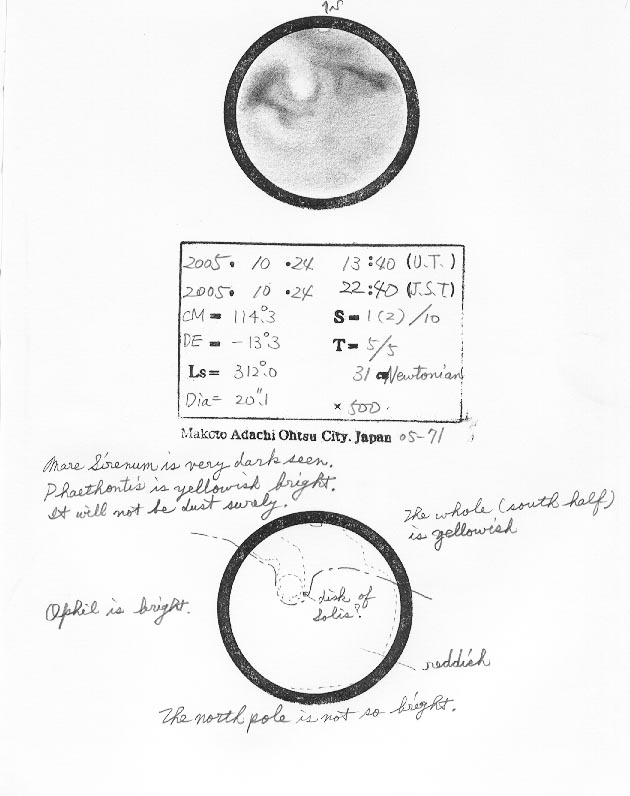 2005. 10 .24 13:40 (U.T.)
2005. 10 .24 22:40 (J.S.T)
CM = 114.°3 S = 1(2)/10
DE = -13.°3 T = 5/5
Ls = 312.°0 31 Newtonian
Dia = 20."1 × 500.
Makoto Adachi Ohtsu City. Japan 05-71
Mare Sirenum is very dark seen.
Phaethontis is yellowish bright.
It will not be dust surely.
The whole (south half)
is yellowish
Ophil is bright.
disk of
Solis?
reddish
The north pole is not so bright.